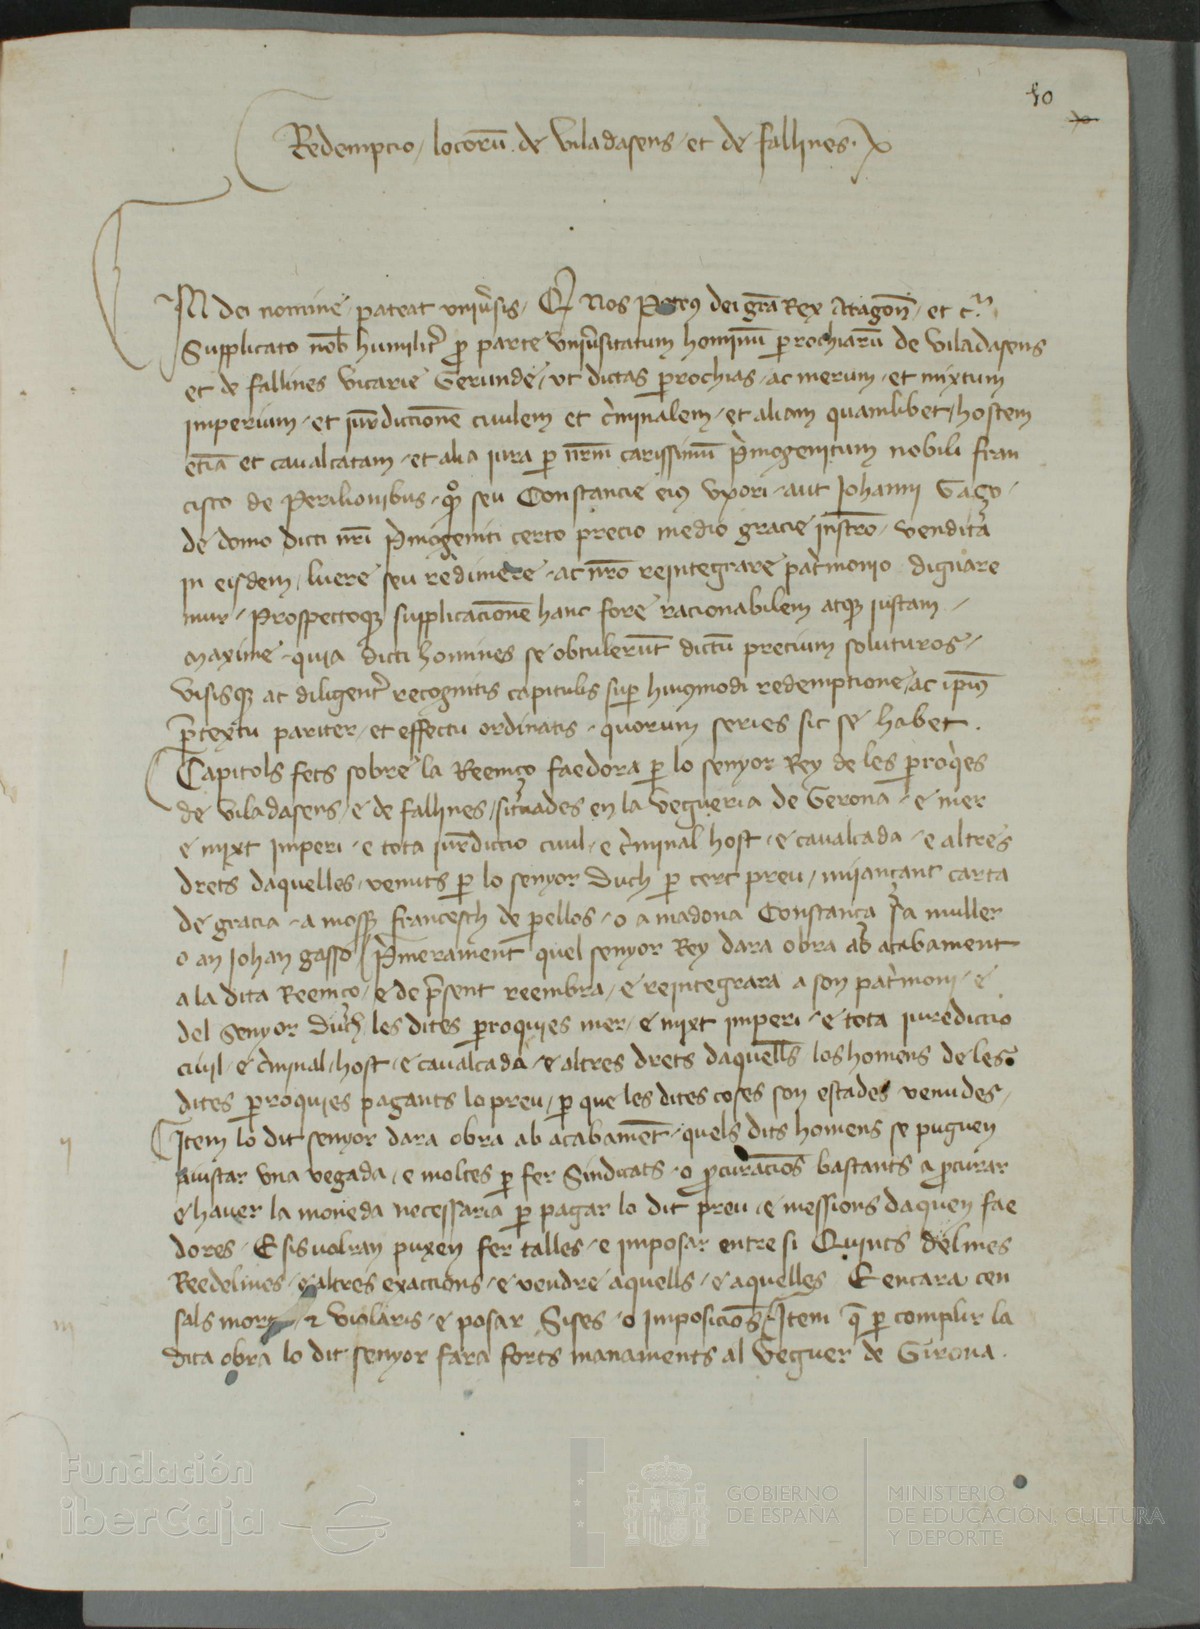 50
Redempcio / locorũ de Viladasens / et de fallines.
IN dei nomine pateat vniũsis / Q Nos Petrus dei grã Rex Aragoñ / et cª
Supplicato nob humilit̃ p parte vniũsitatum hominũ parrochiarũ de viladasens
et de fallines vicarie Gerunde / vt dictas parrochias / ac merum / et mixtum
imperium / et iurediccionẽ ciuilem et c̃minalem / et aliam quamlibet / hostem
etiã et caualcatam / et alia iura p nr̃m carissimũ p̃mogenitum nobili fran
cisco de Perilionibus / qº seu Constancie eiꝰ vxori / aut Johanni Gaço /
de domo dicti nr̃i p̃mogeniti certo precio medio gracie instr̃o / vendita
in eisdem / luere seu redimere / ac nr̃o reintegrare pat̃monio dignare
mur / Prospectoqꝫ supplicacionẽ hanc fore racionabilem atqꝫ iustam /
maxime / quia dicti homines se obtulerũt dictũ precium soluturos /
visisqꝫ ac diligent̃ recognitis capitulis sup huiꝰmodi redempcione / ac ip̃iꝰ
p̃textu pariter / et effectu ordinatis / quorum series sic se habet.
Capitols fets sobre la Reemço faedora p lo senyor Rey de les parroq̃es
de viladasens / e de fallines / situades en la vegueria de Gerona / e mer
e mixt imperi / e tota iurẽdiccio ciuil / e c̃minal host / e caualcada / e altres
drets daquelles / venuts p lo senyor Duch p cert preu / mijançant carta
de gracia / a mosṣ francesch de perellos / o a madona Constança s̃a muller
o an Johan gasso / P̃merament quel senyor Rey dara obra ab acabament
a la dita Reemço / e de p̃sent reembra / e reintegrara a son pat̃moni / e
del senyor duch les dites parroquies mer / e mixt imperi / e tota iurediccio
ciuil / e c̃minal / host / e caualcada / e altres drets daquells los homens de les
dites parroquies pagants lo preu / p que les dites coses son estades venudes /
Item lo dit senyor dara obra ab acabamẽt / quels dits homens se puguen
aiustar vna vegada / e moltes p fer Sindicats / o p̃curacioñs bastants a p̃curar
e hauer la moneda necessaria p pagar lo dit preu / e messions daquen fae
dores / E sis volran puxen fer talles / e imposar entre si Quints delmes
Reedelmes / e altres exaccions / e vendre aquells / e aquelles E encara cen
sals morts / ⁊ violaris / e posar Sises / o imposicioñs / Item q̃ p complir la
dita obra lo dit senyor fara forts manaments al Veguer de Girona.
Fundación
iberCaja
GOBIERNO
DE ESPAÑA
MINISTERIO
DE EDUCACIÓN, CULTURA
Y DEPORTE